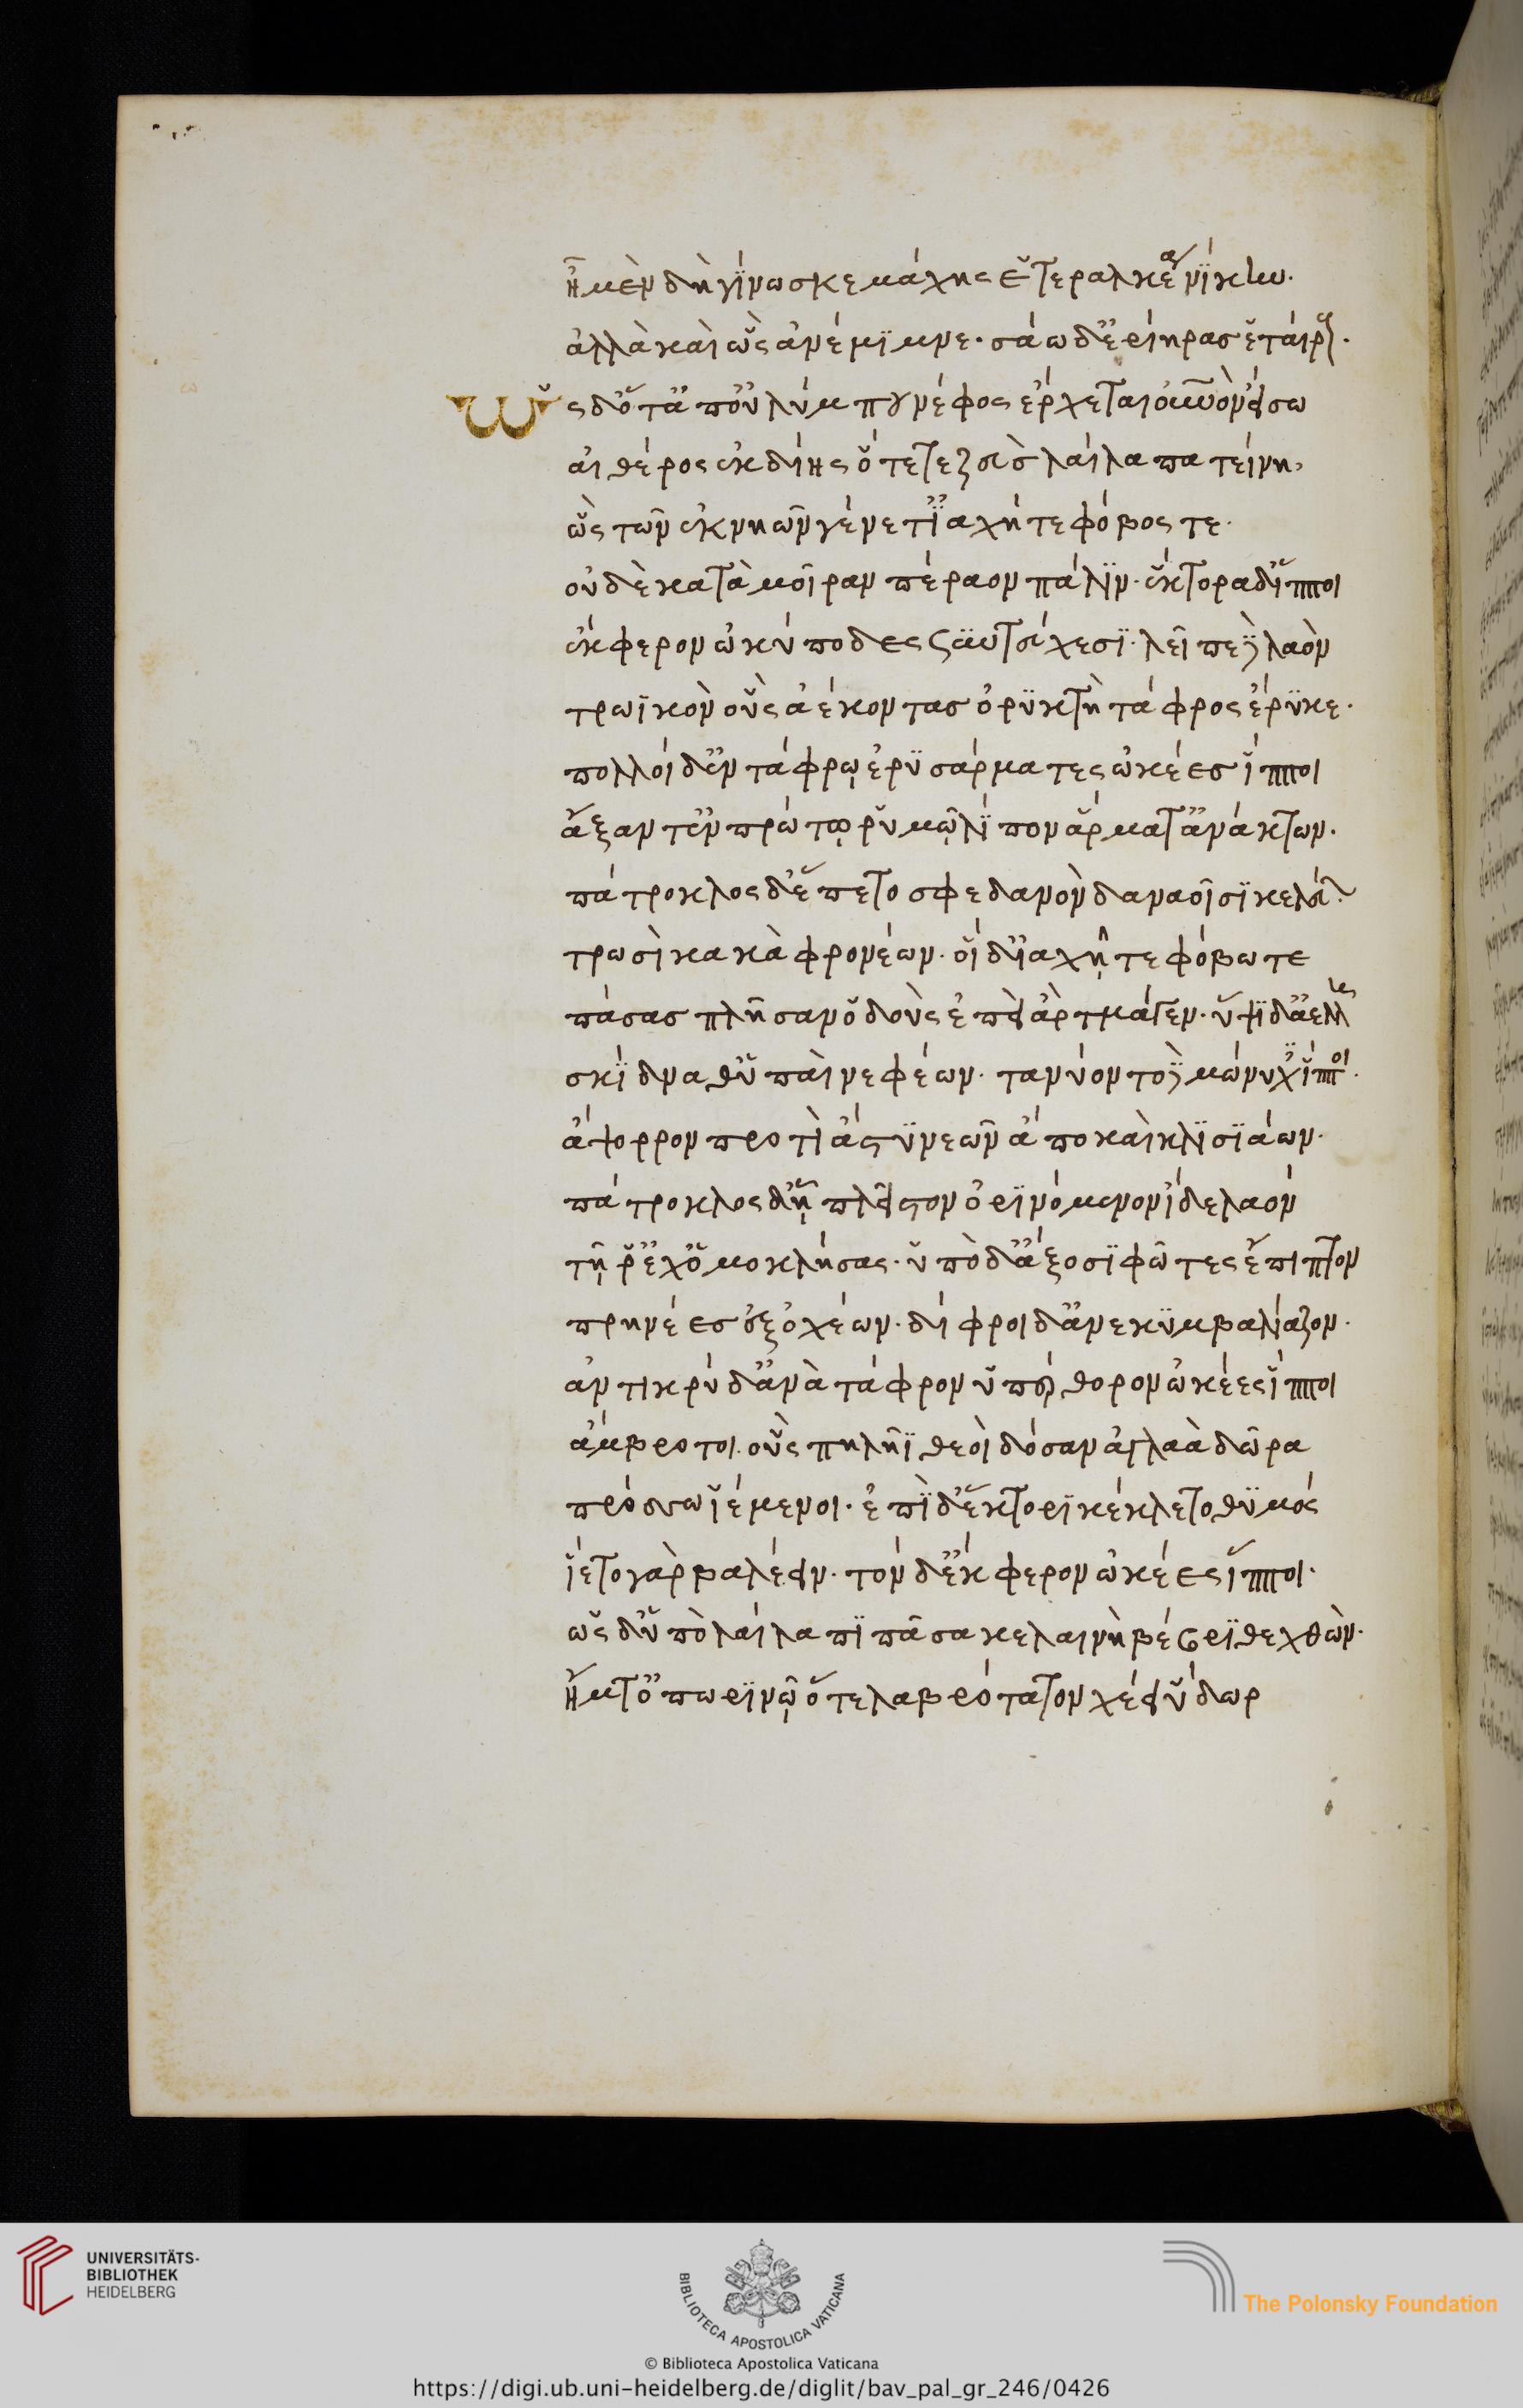 ἦ μὲν δὴ γίνωσκε μάχης ἑτεραλκέα νίκην·
ἀλλὰ καὶ ὣς ἀνέμιμνε· σάω δ' ἐρίηρας ἑταίρους·
Ὡς δ' ὅτ' ἀπ' οὐλύμπου νέφος ἔρχεται οὐρανὸν εἴσω
αἰθέρος ἐκ δίης ὅτε τε ζεὺς λαίλαπα τείνῃ,
ὣς τῶν ἐκ νηῶν γένετ' ἰαχή τε φόβος τε·
οὐδὲ κατὰ μοῖραν πέραον πάλιν· ἕκτορα δ' ἵπποι
ἔκφερον ὠκύποδες σὺν τεύχεσι· λεῖπε δὲ λαὸν
τρωϊκὸν οὓς ἀέκοντας ὀρυκτὴ τάφρος ἔρυκε·
πολλοὶ δ' ἐν τάφρῳ ἐρυσάρματες ὠκέες ἵπποι
ἄξαντ' ἐν πρώτῳ ῥυμῷ λίπον ἅρματ' ἀνάκτων·
πάτροκλος δ' ἕπετο σφεδανὸν δαναοῖσι κελεύων
τρωσὶ κακὰ φρονέων· οἱ δ' ἰαχῇ τε φόβω τε
πάσας πλῆσαν ὁδοὺς ἐπεὶ ἂρ τμάγεν· ὕψι δ' ἄελλα
σκίδναθ' ὑπαὶ νεφέων· τανύοντο δὲ μώνυχες ἵπποι·
ἄψορρον προτὶ ἄστυ νεῶν ἄπο καὶ κλισιάων·
πάτροκλος δ' ᾗ πλεῖστον ὀρινόμενον ἴδε λαὸν
τῇ ῥ' ἔχ' ὁμοκλήσας· ὑπὸ δ' ἄξοσι φῶτες ἔπιπτον
πρηνέες ἐξ ὀχέων· δίφροι δ' ἀνεκυμβαλίαζον·
ἀντικρὺ δ' ἀνὰ τάφρον ὑπέρθορον ὠκέες ἵπποι
ἄμβροτοι οὓς πηλῆϊ θεοὶ δόσαν ἀγλαὰ δῶρα
πρόσσω ἱέμενοι· ἐπὶ δ' ἕκτορι κέκλετο θυμός
ἵετο γὰρ βαλέειν· τὸν δ' ἔκφερον ὠκέες ἵπποι·
ὡς δ' ὑπὸ λαίλαπι πᾶσα κελαινὴ βέβριθε χθὼν·
ἤματ' ὀπωρινῷ ὅτε λαβρότατον χέει ὕδωρ
UNIVERSITÄTS-
BIBLIOTHEK
HEIDELBERG
BIBLIOTECA APOSTOLICA VATICANA
The Polonsky Foundation
© Biblioteca Apostolica Vaticana
https://digi.ub.uni-heidelberg.de/diglit/bav_pal_gr_246/0426